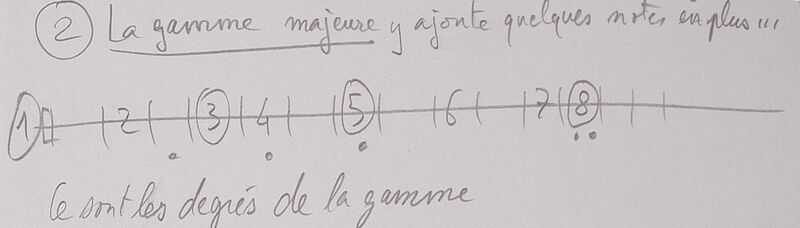 2 La gamme majeure y ajoute quelques notes en plus...
1 2 3 4 5 6 7 8
Ce sont les degrés de la gamme